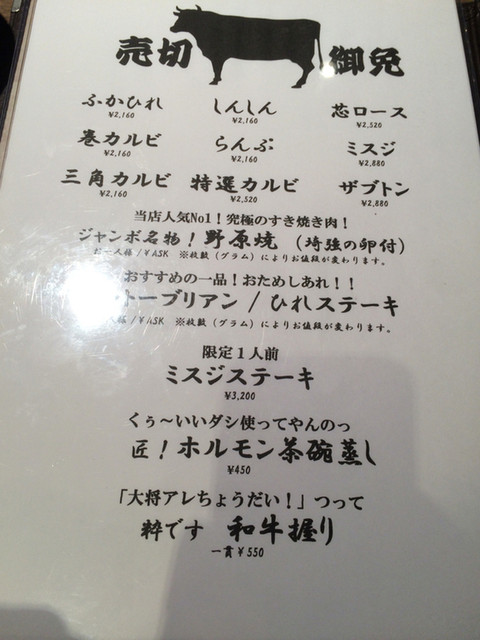 売切 御免
ふかひれ しんしん 芯ロース
¥2,160 ¥2,160 ¥2,520
巻カルビ らんぷ ミスジ
¥2,160 ¥2,160 ¥2,880
三角カルビ 特選カルビ ザブトン
¥2,160 ¥2,520 ¥2,880
当店人気No1！究極のすき焼き肉！
ジャンボ名物！野原焼（埼強の卵付）
お一人様 /¥ASK ※枚数（グラム）によりお値段が変わります。
おすすめの一品！おためしあれ！！
トーブリアン / ひれステーキ
様 /¥ASK ※枚数（グラム）によりお値段が変わります。
限定１人前
ミスジステーキ
¥3,200
くぅ～いいダシ使ってやんのっ
匠！ホルモン茶碗蒸し
¥450
「大将アレちょうだい！」つって
粋です 和牛握り
一貫¥550